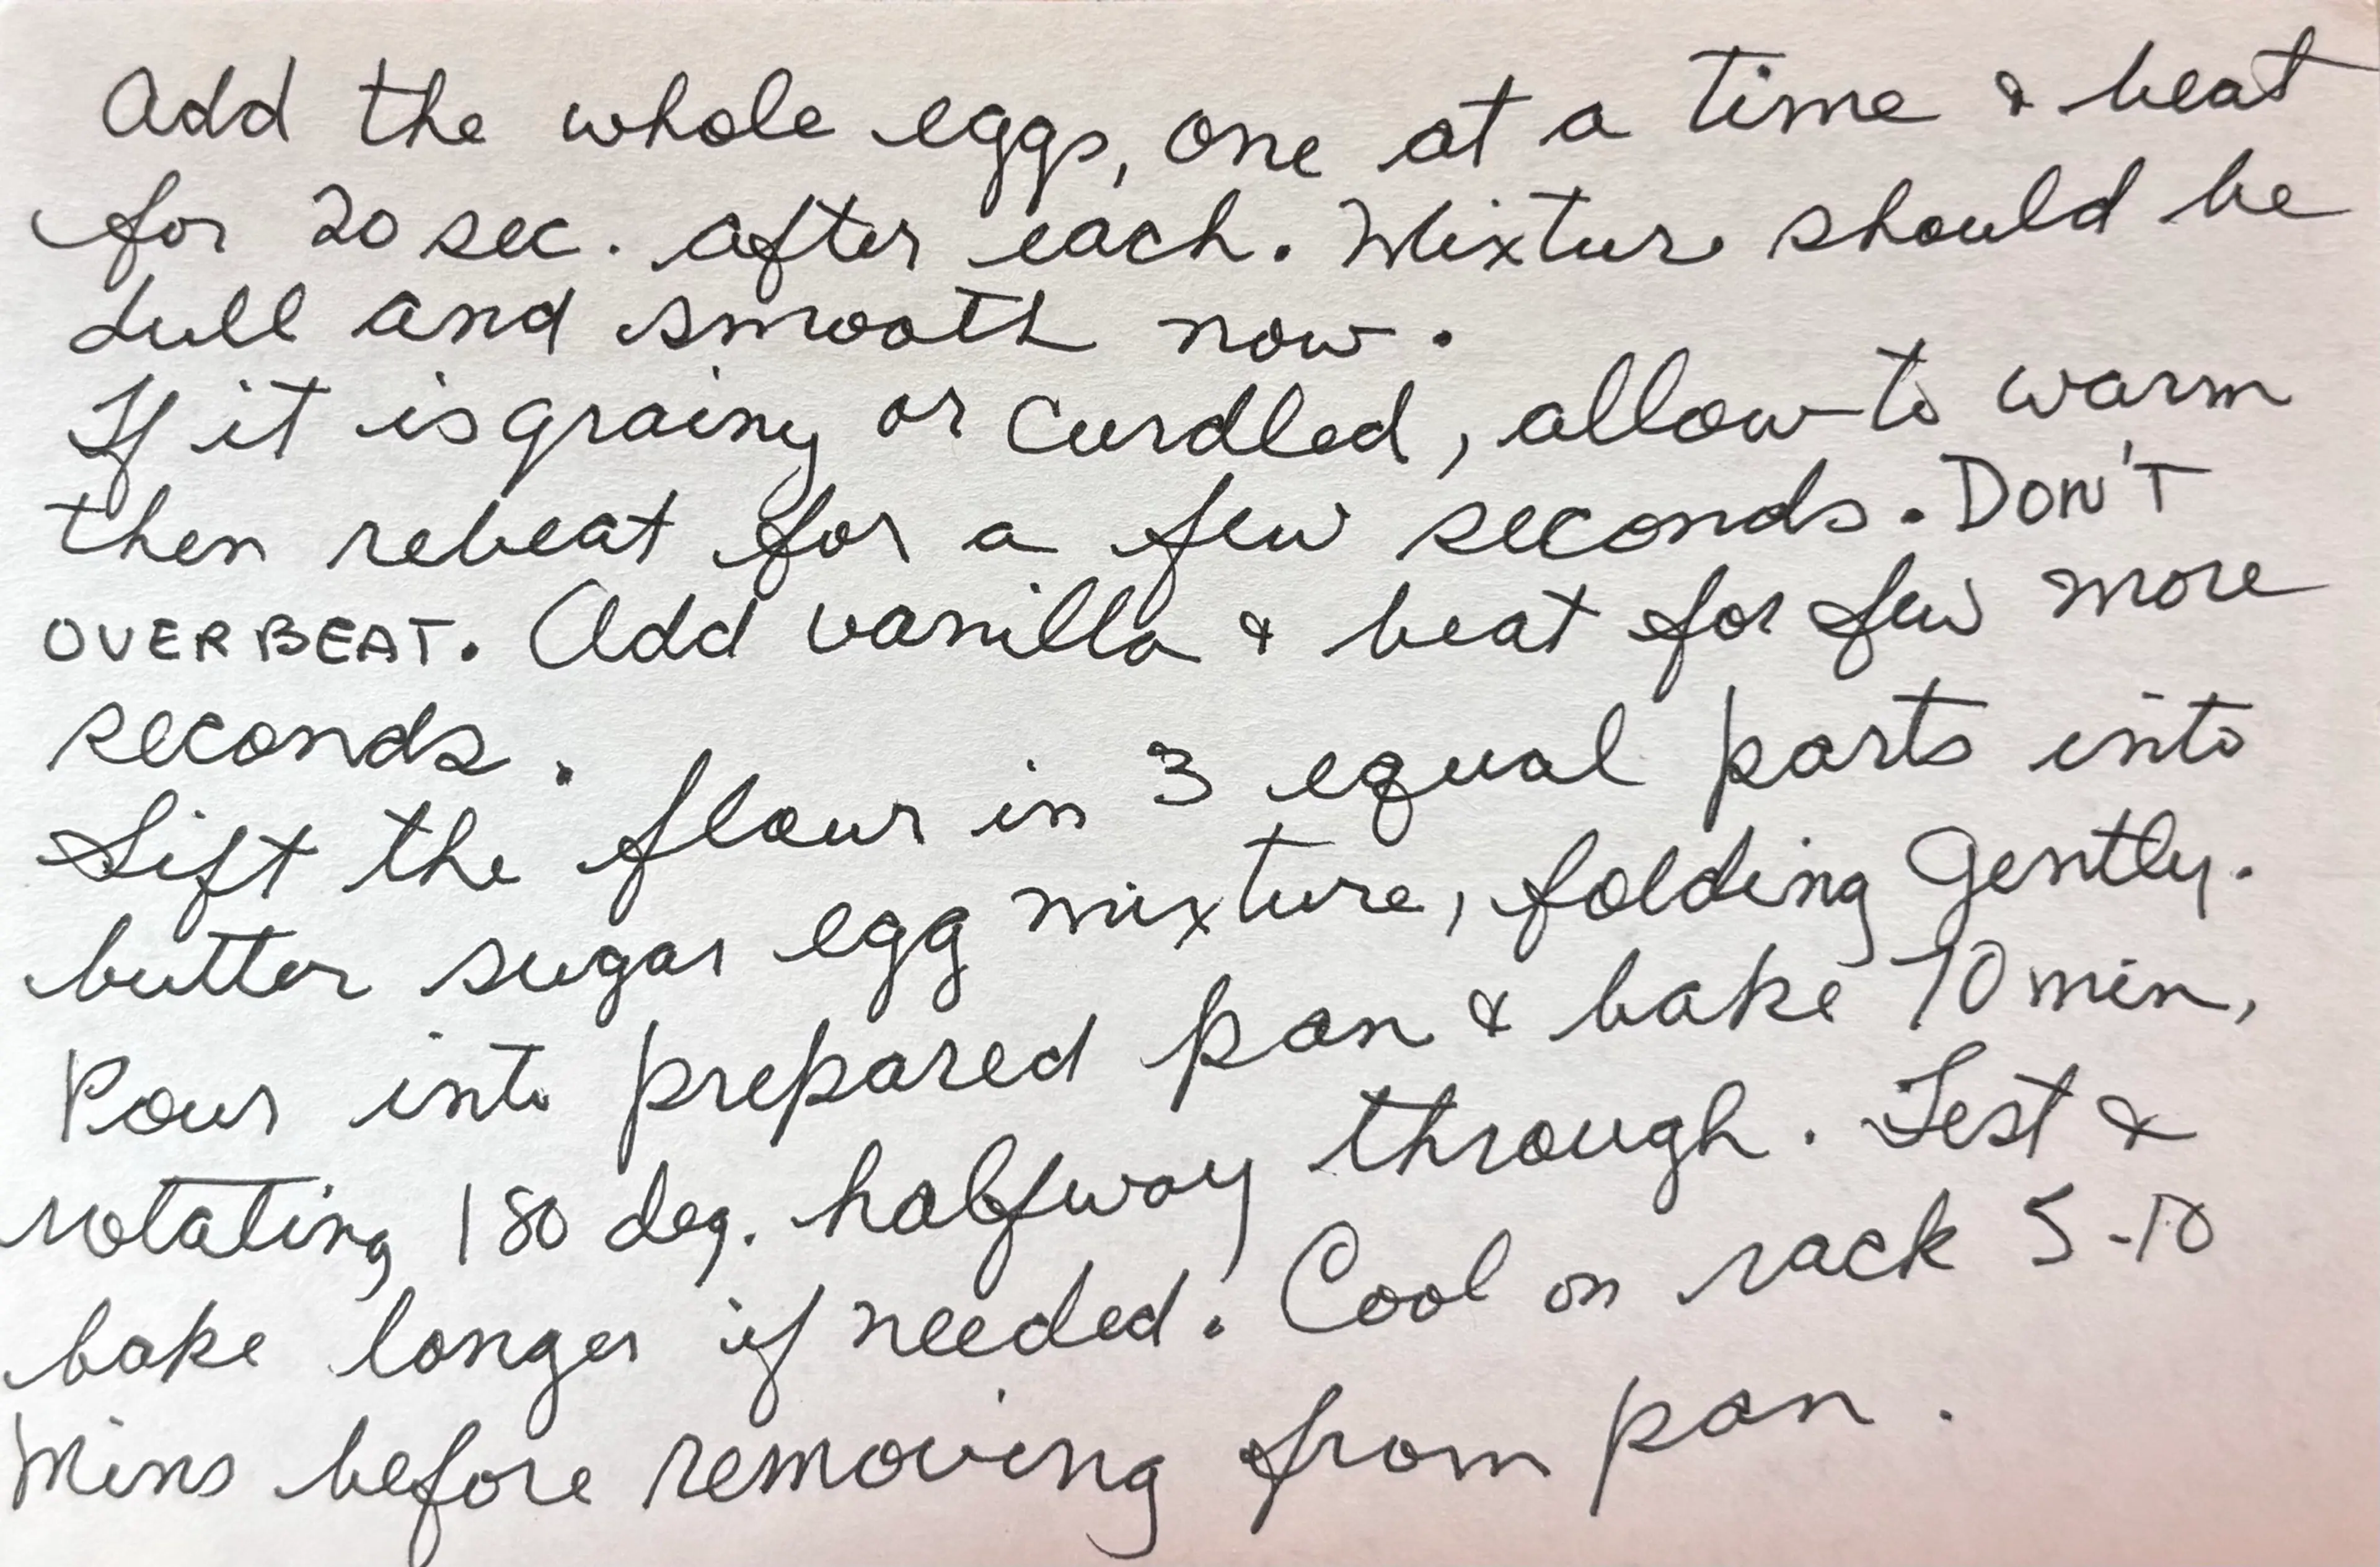 Add the whole eggs, one at a time & beat
for 20 sec. after each. Mixture should be
dull and smooth now.
If it is grainy or curdled, allow to warm
then rebeat for a few seconds. DON'T
OVERBEAT. Add vanilla & beat for few more
seconds.
Sift the flour in 3 equal parts into
butter sugar egg mixture, folding gently.
Pour into prepared pan & bake 70 min,
rotating 180 deg. halfway through. Test &
bake longer if needed. Cool on rack 5-10
Mins before removing from pan.